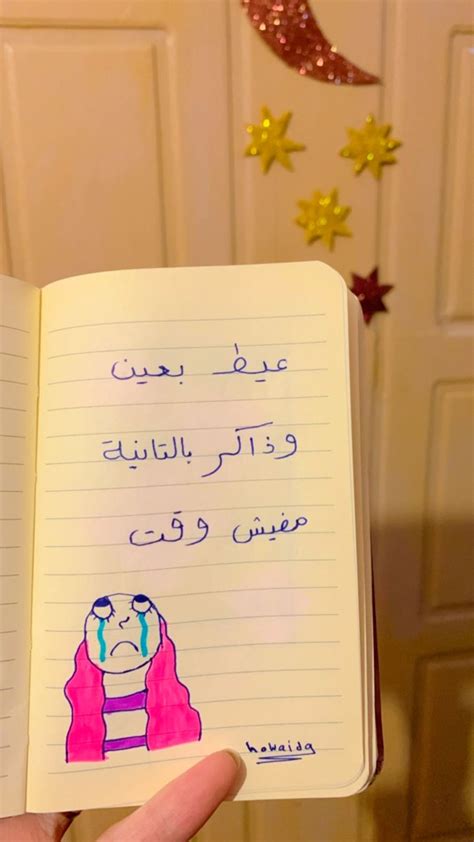 عيط بعين
وذاكر بالتانية
مفيش وقت
howaida